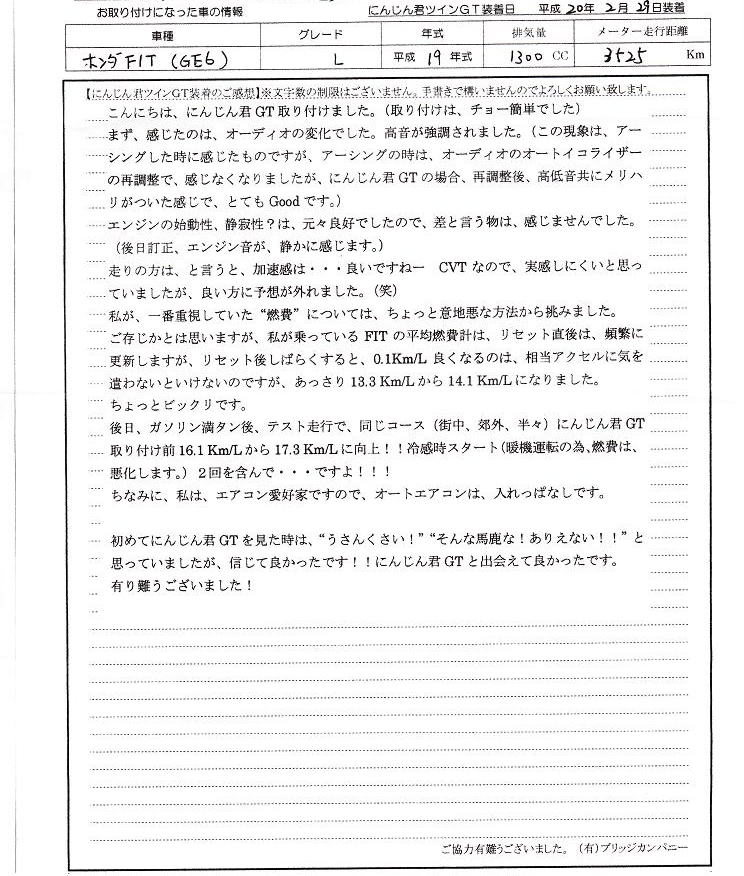 お取り付けになった車の情報 にんじん君ツインGT装着日 平成 20年 2月 29日装着
車種 グレード 年式 排気量 メーター走行距離
ホンダFIT (GE6) L 平成 19 年式 1300 CC 3525 Km
【にんじん君ツインGT装着のご感想】※文字数の制限はございません。手書きで構いませんのでよろしくお願い致します。
こんにちは、にんじん君 GT 取り付けました。（取り付けは、チョー簡単でした）
まず、感じたのは、オーディオの変化でした。高音が強調されました。（この現象は、アー
シングした時に感じたものですが、アーシングの時は、オーディオのオートイコライザー
の再調整で、感じなくなりましたが、にんじん君 GT の場合、再調整後、高低音共にメリハ
リがついた感じで、とても Good です。）
エンジンの始動性、静寂性？は、元々良好でしたので、差と言う物は、感じませんでした。
（後日訂正、エンジン音が、静かに感じます。）
走りの方は、と言うと、加速感は・・・良いですねー　CVT なので、実感しにくいと思っ
ていましたが、良い方に予想が外れました。（笑）
私が、一番重視していた“燃費”については、ちょっと意地悪な方法から挑みました。
ご存じかとは思いますが、私が乗っている FIT の平均燃費計は、リセット直後は、頻繁に
更新しますが、リセット後しばらくすると、0.1Km/L 良くなるのは、相当アクセルに気を
遣わないといけないのですが、あっさり 13.3 Km/L から 14.1 Km/L になりました。
ちょっとビックリです。
後日、ガソリン満タン後、テスト走行で、同じコース（街中、郊外、半々）にんじん君 GT
取り付け前 16.1 Km/L から 17.3 Km/L に向上！！冷感時スタート（暖機運転の為、燃費は、
悪化します。）２回を含んで・・・ですよ！！！
ちなみに、私は、エアコン愛好家ですので、オートエアコンは、入れっぱなしです。
初めてにんじん君 GT を見た時は、“うさんくさい！”“そんな馬鹿な！ありえない！！”と
思っていましたが、信じて良かったです！！にんじん君 GT と出会えて良かったです。
有り難うございました！
ご協力有難うございました。（有）ブリッジカンパニー